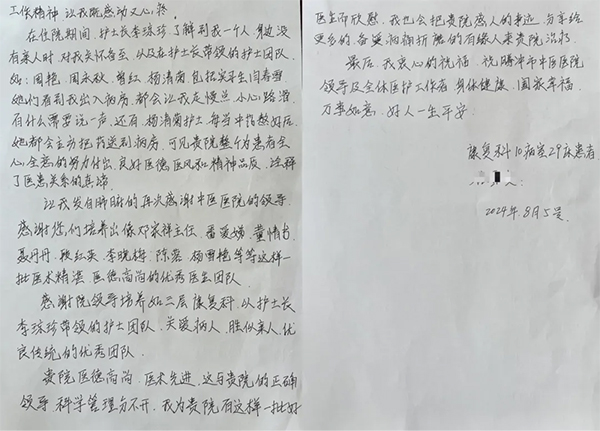 工作精神,让我既感动又心疼。
在住院期间,护士长李琼珍了解到我一个人,身边没
有亲人时,对我关怀备至,以及在护士长带领的护士团队,
如:周艳、周永秋、曾红、杨清菊包括实习生闫春雪
她们看到我出入病房,都会让我走慢点,小心路滑,
有什么需要说一声,还有,杨清菊护士,每当中药熬好后,
她都会主动把药送到病房,可见贵院整个为患者全心
全意的努力付出,良好医德医风和精神品质,诠释
了医患关系的真谛。
让我发自肺腑的再次感谢中医医院的领导,
感谢您们培养出像邓家祥主任、
聂丹丹、耿红英、李晓梅、陈蓉、等等这样一
批医术精湛、医德高尚的优秀医生团队。
感谢院领导培养如二层康复科,以护士长
李琼珍带领的护士团队,关爱病人,胜似亲人,优
良传统的优秀团队。
贵院医德高尚,医术先进,这与贵院的正确
领导,科学管理分不开,我为贵院有这样一批好
医生而欣慰,我也会把贵院感人的事迹,分享给
更多的,备受病痛折磨的有缘人来贵院治疗。
最后,我衷心的祝福,祝腾冲市中医医院
领导及全体医护工作者,身体健康,阖家幸福,
万事如意,好人一生平安。
康复科10病室29床患者
2024年8月5号